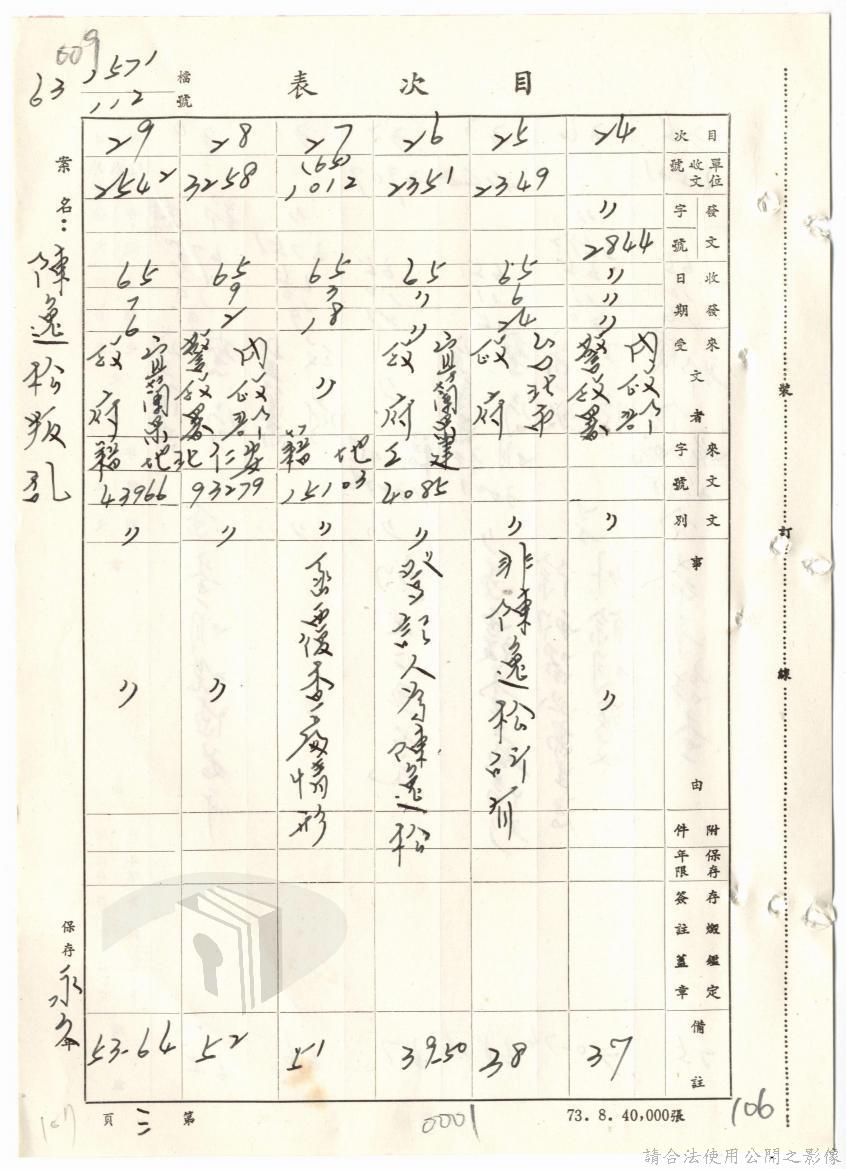 009
63
1571
112
檔號
目次表
目次
24
25
26
27
28
29
單位收文號
2349
2351
(65)
1012
3258
2542
發文字號
〃
2844
收發日期
〃
〃
〃
65
6
24
65
〃
〃
65
3
18
65
9
2
65
7
6
來文受文者
內政部
警政署
台北市
政府
宜蘭縣
政府
〃
內政部
警政署
宜蘭縣
政府
來文字號
4085
地籍
15103
93279
地籍
43966
文別
〃
〃
〃
〃
〃
〃
事由
〃
非陳逸松所有
登記人為陳逸松
函再復查廢情形
〃
〃
附件
保存年限
存燬鑑定簽註蓋章
備註
37
38
39-50
51
52
53-64
案名：陳逸松叛亂
保存永久年
裝訂線
第三頁
0001
73. 8. 40,000張
106
107
請合法使用公開之影像